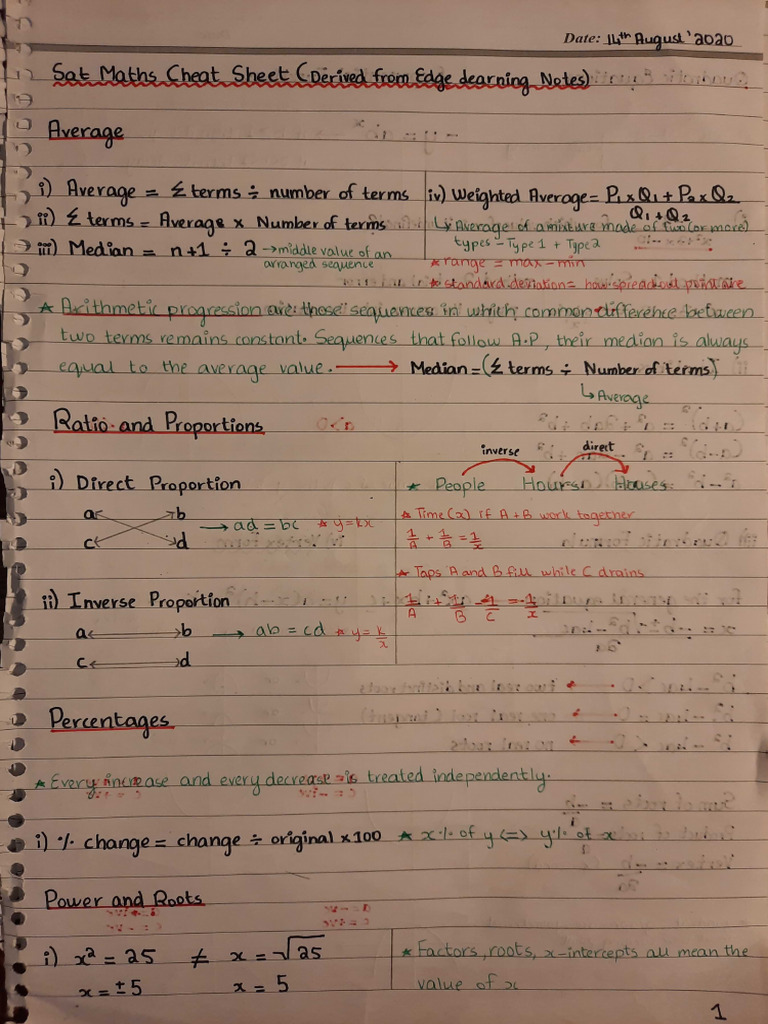 Date: 14th August' 2020
Sat Maths Cheat Sheet (Derived from Edge dearning Notes)
Average
i) Average = Σ terms ÷ number of terms
ii) Σ terms = Average x Number of terms
iii) Median = n+1 ÷ 2 → middle value of an
arranged sequence
iv) Weighted Average = P₁ x Q₁ + P₂ x Q₂
Q₁ + Q₂
↳ Average of a mixture made of two (or more)
types - Type 1 + Type 2
* range = max - min
* standard deviation = how spreadout point are
* Arithmetic progression are those sequences in which common difference between
two terms remains constant. Sequences that follow A.P, their median is always
equal to the average value. → Median = (Σ terms ÷ Number of terms)
↳ Average
Ratio and Proportions
i) Direct Proportion
a b
c d → ad = bc * y = kx
ii) Inverse Proportion
a ↔ b → ab = cd * y = k/x
c ↔ d
inverse direct
* People Hours Houses
* Time (x) if A + B work together
1/A + 1/B = 1/x
* Taps A and B fill while C drains
1/A + 1/B - 1/C = 1/x
Percentages
* Every increase and every decrease is treated independently.
i) % change = change ÷ original x 100 * x% of y <=> y% of x
Power and Roots
i) x² = 25 ≠ x = √25
x = ±5 x = 5
* Factors, roots, x-intercepts all mean the
value of x
1